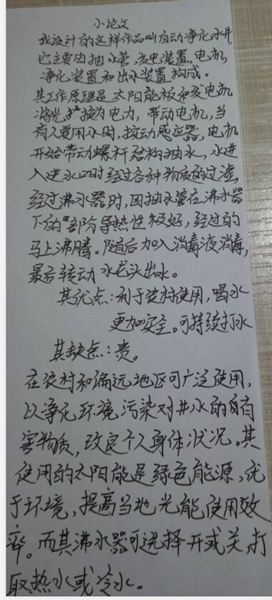 小论文
我设计的这样作品叫自动净化水井
它主要由抽水管、发电装置、电机
净化装置和出水装置构成。
其工作原理是太阳能板和发电机
将光扩换为电力，带动电机，当
有人要用水时，按动感应器，电机
开始带动螺杆结构抽水，水进
入进水口时经过各种物质的过渣，
经过沸水器时，因抽水管在沸水器
下的部阶导热性极好，经过的
马上沸腾。随后加入消毒液消毒，
最后转动水龙头出水。
其优点：利于农村使用，喝水
更加安全。可持续过水
其缺点：贵。
在农村和偏远地区可广泛使用，
以净化环境污染对井水的有
害物质，改良个人身体状况。其
使用的太阳能是绿色能源，优
于环境，提高当地光能使用效
率。而其沸水器可选择开或关，打
取热水或冷水。